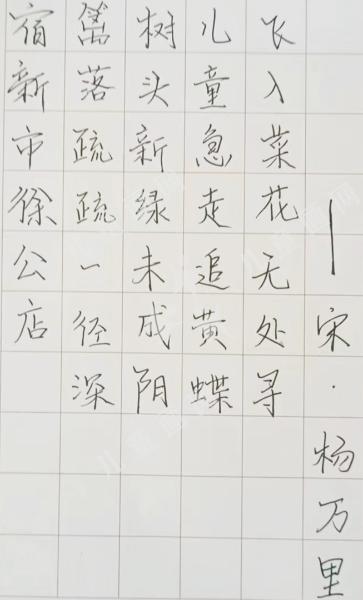 宿新市徐公店
篱落疏疏一径深
树头新绿未成阴
儿童急走追黄蝶
飞入菜花无处寻
——宋·杨万里